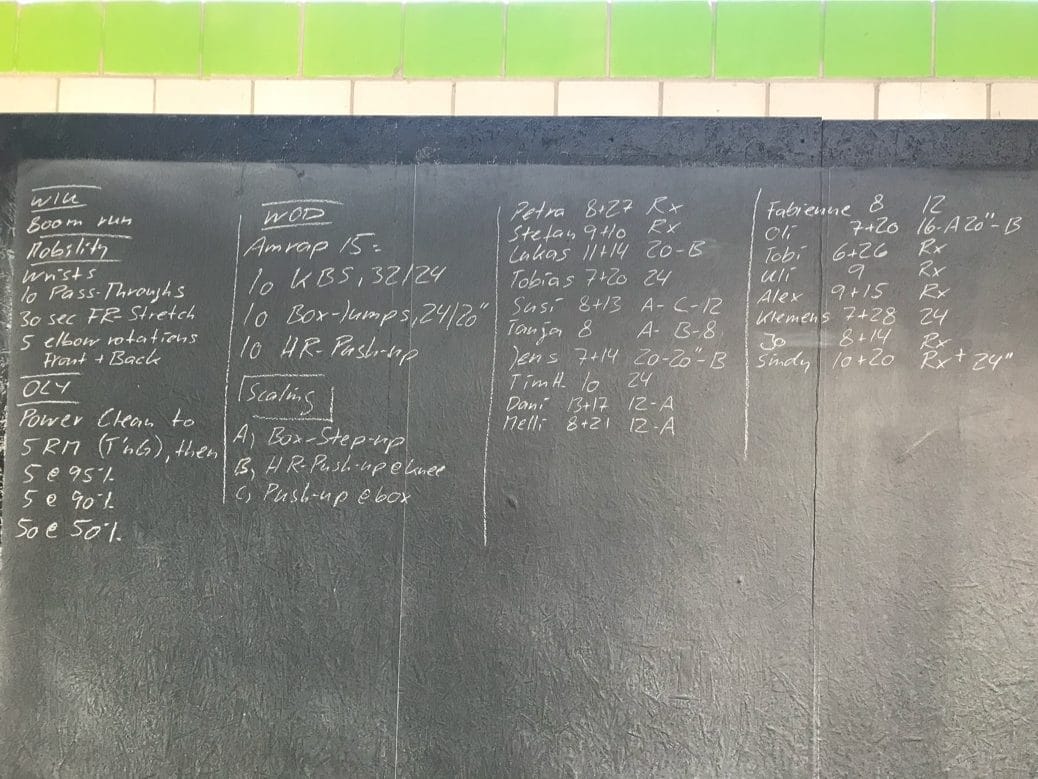 WU
Boom run
Mobility
Wrists
10 Pass-Throughs
30 sec FR-Stretch
5 elbow rotations
Front + Back
OLY
Power Clean to
5 RM (T'nG), then
5 @ 95%
5 @ 90%
50 @ 50%
WOD
Amrap 15:
10 KBS, 32/24
10 Box-Jumps, 24/20"
10 HR-Push-up
Scaling
A) Box-Step-up
B) HR-Push-up @ knee
C) Push-up @ box
Petra 8+27 Rx
Stefan 9+10 Rx
Lukas 11+14 20-B
Tobias 7+20 24
Susi 8+13 A-C-12
Tanja 8 A-B-8
Jens 7+14 20-20"-B
Tim H. 10 24
Dani 13+17 12-A
Melli 8+21 12-A
Fabienne 8 12
Oli 7+20 16-A20"-B
Tobi 6+26 Rx
Uli 9 Rx
Alex 9+15 Rx
Klemens 7+28 24
Jo 8+14 Rx
Sindy 10+20 Rx+ 24"